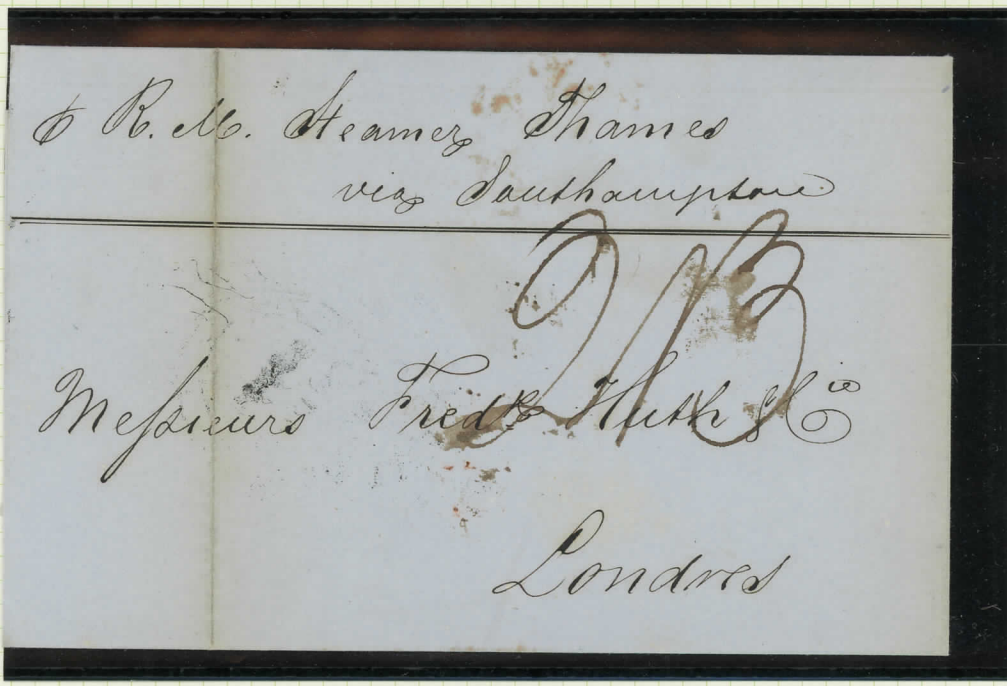 ℘ R. M. Steamer Thames
via Southampton
2/3
Messieurs Fredk Huth & Cie
Londres